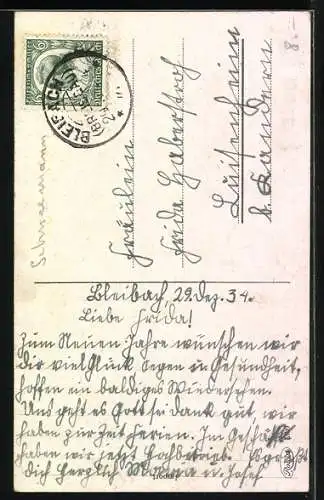 BLEIBACH
Fräulein
Frida Haberstroh
Luisenheim
b. Kandern
Bleibach, 29. Dez. 34.
Liebe Frida!
Zum Neuen Jahre wünschen wir
dir viel Glück Segen u. Gesundheit,
hoffen ein baldiges Wiedersehen.
Uns geht es Gott sei Dank gut, wir
haben zur Zeit Ferien. Im Geschäft
haben wir jetzt Hochbetrieb. Es grüßt
Dich herzlich u. Josef